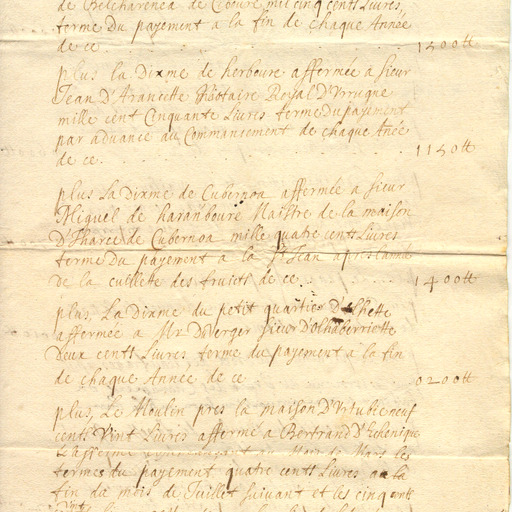 de Belcharenea de Ciboure mil cinq cents Livres,
terme du payement a la fin de chaque Année
de ce 1500tt
plus la Dixme de herboure affermée a Sieur
Jean D'Arancette Nottaire Royal D'Urrugne
mille cent Cinquante Livres terme du payement
par advance au Commancement de chaque Anée
de ce 1150tt
plus La Dixme de Cubernoa affermée a Sieur
Miguel de haranboure Maistre de la maison
D'Tharce de Cubernoa mille quatre cents Livres
terme du payement a la St Jean apres
de la cuillete des fruits de ce 1400tt
plus, La Dixme du petit quartier D'olhette
affermée a Mr Duverger Sieur D'Olhaberriette
deux cents Livres terme du payement a la fin
de chaque Année de ce 0200tt
plus, Le Moulin pres la maison D'Urtubie neuf
cents Vint Livres affermé a Bertrand D'Echenique
L'afferme au Mois de Mars les
termes du payement quatre cents Livres a la
fin du mois de Juillet suivant et les cinq cent
Vint